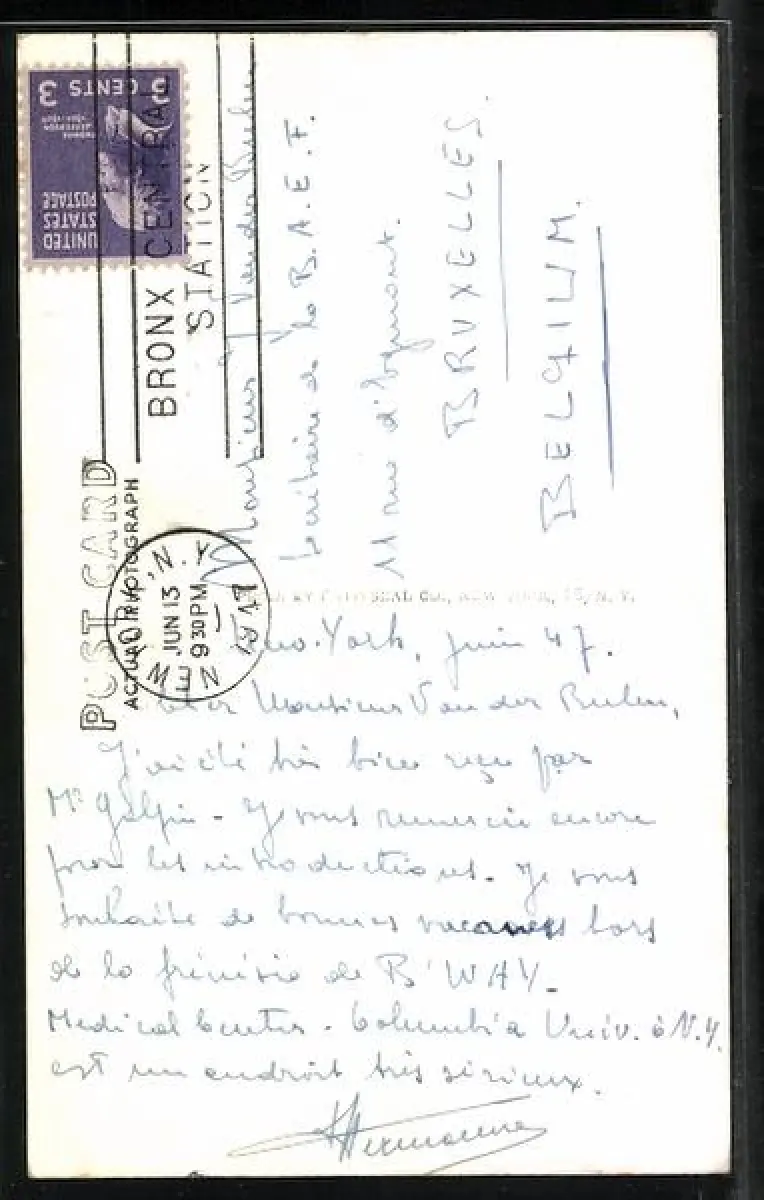 UNITED
STATES
POSTAGE
THOMAS
JEFFERSON
3 CENTS 3
BRONX CENTRAL
STATION
NEW YORK, N.Y.
JUN 13
9 30 PM
1947
POST CARD
ACTUAL PHOTOGRAPH
Monsieur J Van der Buelen
Secrétaire de la B.A.E.F.
11 rue d'Egmont.
BRUXELLES.
BELGIUM.
NEW YORK, N.Y.
New-York, juin 47.
Cher Monsieur Van der Buelen,
J'ai été très bien reçu par
Mr Galpin - Je vous remercie encore
pour les introductions. Je vous
souhaite de bonnes vacances hors
de la frénésie de B'WAY.
Medical Center - Columbia Univ. à N.Y.
est un endroit très sérieux.